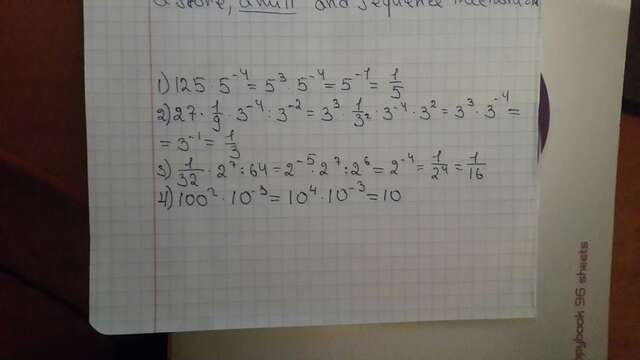 a store, a mill and sequence
1) 125 · 5⁻⁴ = 5³ · 5⁻⁴ = 5⁻¹ = 1/5
2) 27 · 1/9 · 3⁻⁴ : 3⁻² = 3³ · 1/3² · 3⁻⁴ · 3² = 3³ · 3⁻⁴ =
= 3⁻¹ = 1/3
3) 1/32 · 2⁷ : 64 = 2⁻⁵ · 2⁷ : 2⁶ = 2⁻⁴ = 1/2⁴ = 1/16
4) 100² · 10⁻³ = 10⁴ · 10⁻³ = 10
96 sheets